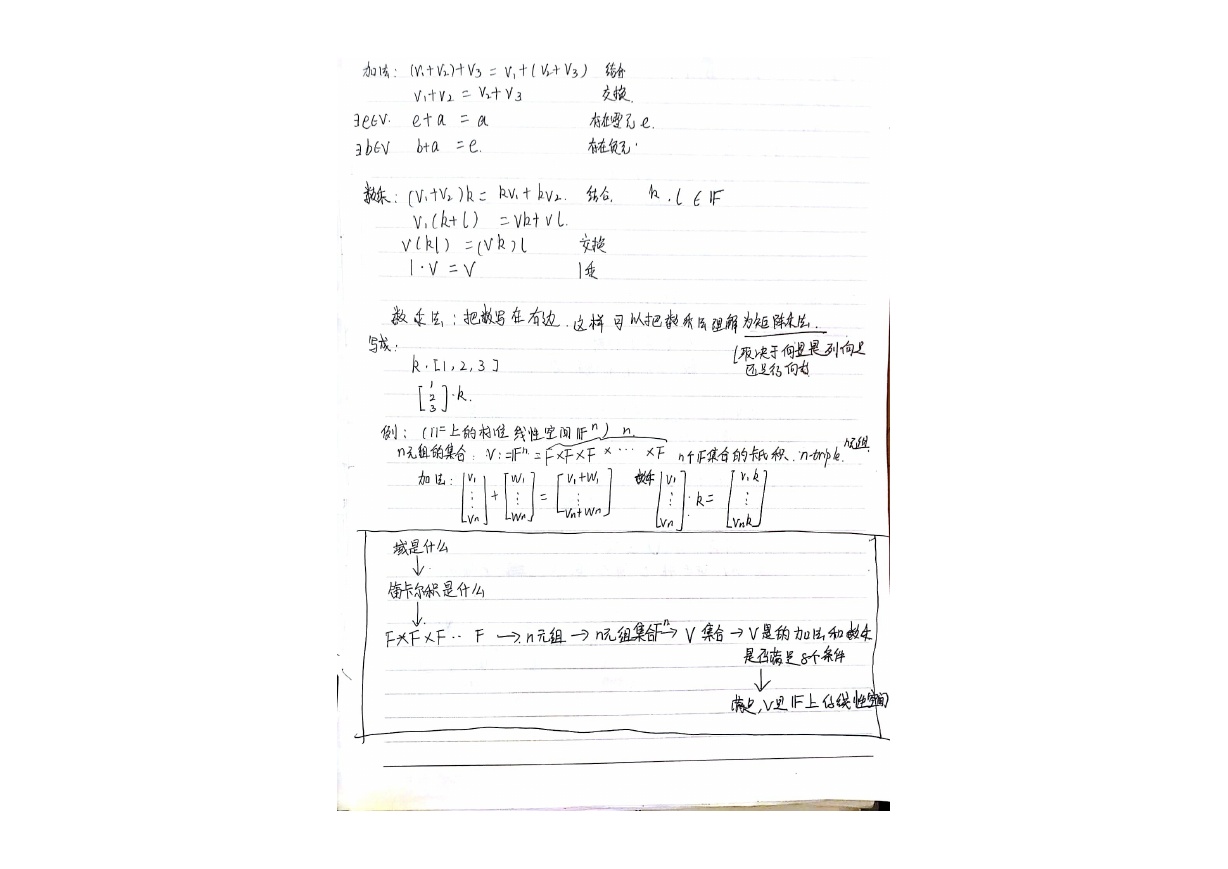 加法: (v₁+v₂)+v₃ = v₁+(v₂+v₃) 结合
v₁+v₂ = v₂+v₃ 交换.
∃e∈V. e+a = a 存在零元 e.
∃b∈V b+a = e. 存在负元.
数乘: (v₁+v₂)k = kv₁+kv₂. 结合. k,l ∈ 𝔽
v₁(k+l) = vk+vl.
v(kl) = (vk)l 交换
1·v = v 1乘
数乘法: 把数写在右边. 这样可以把数乘法理解为矩阵乘法.
写成: (取决于向量是列向量
k·[1,2,3] 还是行向量
[1 2 3]·k.
例: (𝔽上的标准线性空间𝔽ⁿ) n
n元组的集合: V:=𝔽ⁿ = F×F×F×⋯×F n个𝔽集合的卡氏积. n-tuple. n元组
加法: [v₁ ⋮ vn] + [w₁ ⋮ wn] = [v₁+w₁ ⋮ vn+wn] 数乘 [v₁ ⋮ vn]·k = [v₁k ⋮ vnk]
域是什么
↓
笛卡尔积是什么
↓
F×F×F·· F → n元组 → n元组集合Fⁿ → V 集合 → V是的加法和数乘
是否满足8个条件
↓
满足,V是𝔽上的线性空间